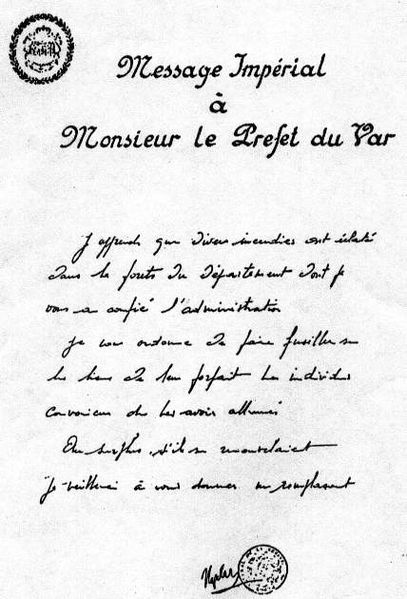 Message Impérial
à
Monsieur le Prefet du Var
J'apprends que divers incendies ont éclaté
dans les forêts du département dont je
vous ai confié l'administration
Je vous ordonne de faire fusiller sur
les lieux de leur forfait les individus
convaincus de les avoir allumés
Au surplus, s'ils se renouvelaient
Je veillerai à vous donner un remplaçant